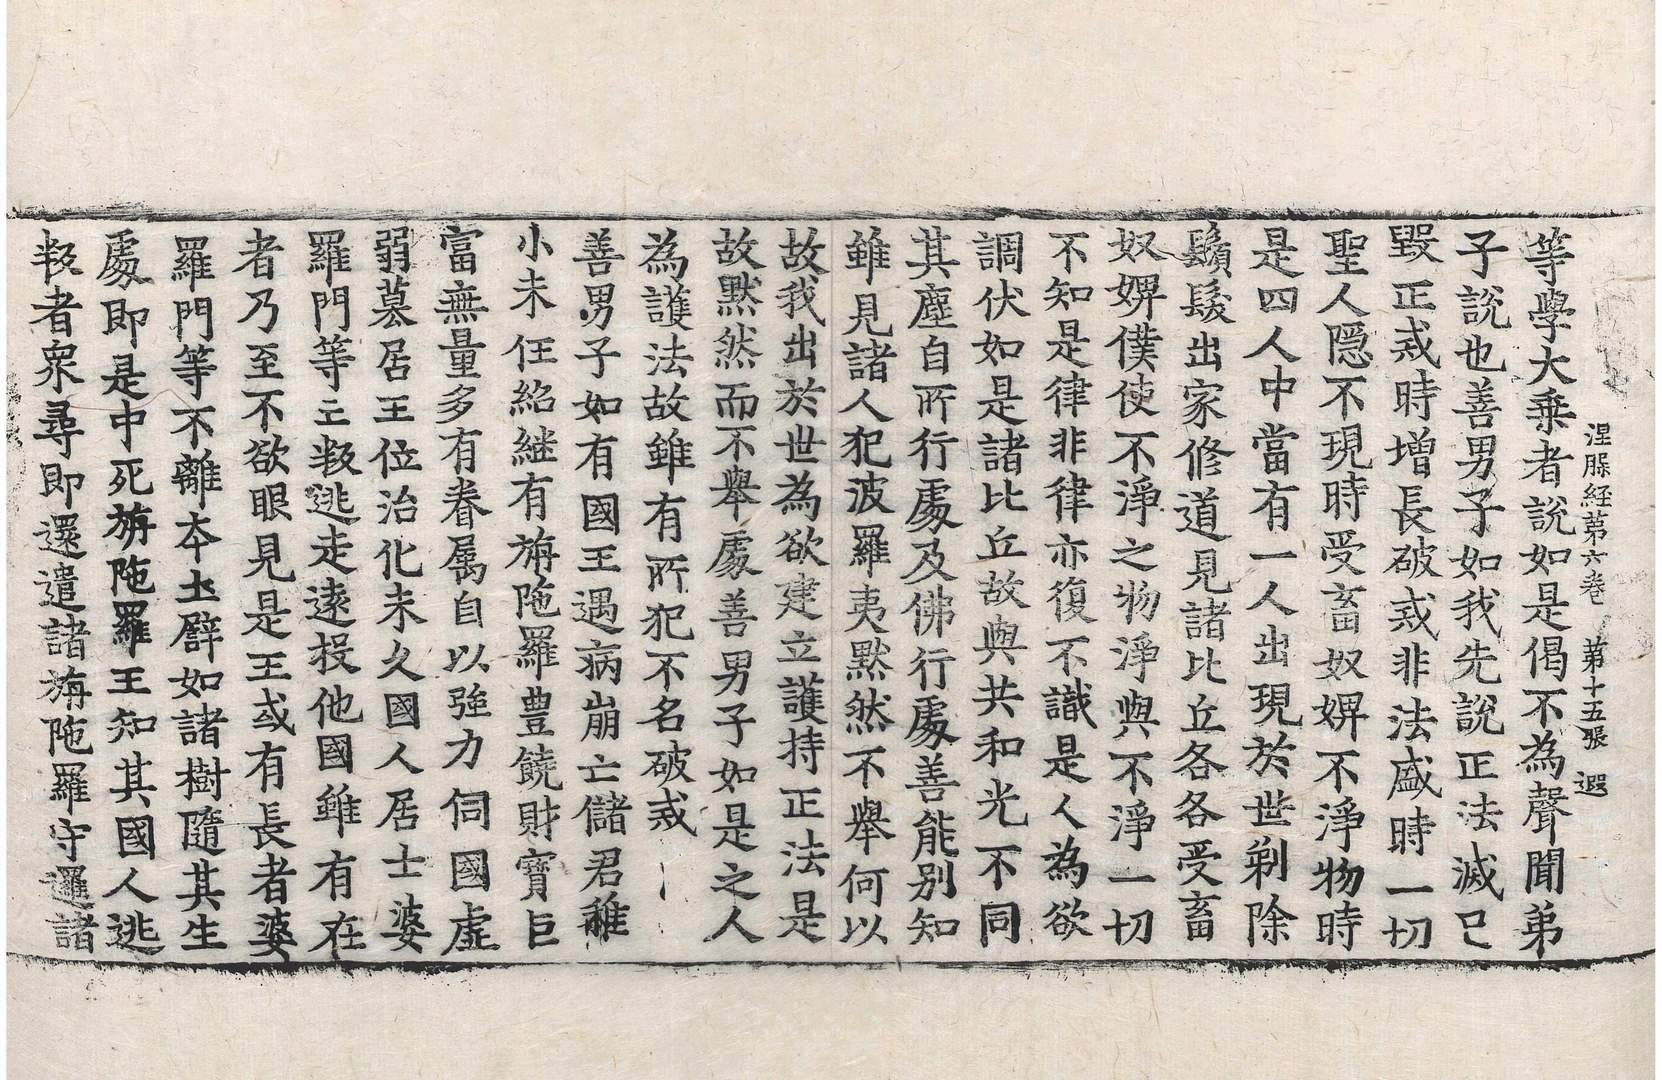 涅槃経第六卷 第十五張 遐
等學大乗者說如是偈不為聲聞弟
子說也善男子如我先說正法滅已
毀正戒時增長破戒非法盛時一切
聖人隱不現時受畜奴婢不淨物時
是四人中當有一人出現於世剃除
鬚髮出家修道見諸比丘各各受畜
奴婢僕使不淨之物淨與不淨一切
不知是律非律亦復不識是人為欲
調伏如是諸比丘故與共和光不同
其塵自所行處及佛行處善能別知
雖見諸人犯波羅夷默然不舉何以
故我出於世為欲建立護持正法是
故默然而不舉處善男子如是之人
為護法故雖有所犯不名破戒
善男子如有國王遇病崩亡儲君稚
小未任紹継有旃陁羅豊饒財寶巨
富無量多有眷属自以強力伺國虛
弱篡居王位治化未久國人居士婆
羅門等亡叛逃走遠投他國雖有在
者乃至不欲眼見是王或有長者婆
羅門等不離本土譬如諸樹隨其生
處即是中死旃陁羅王知其國人逃
叛者衆尋即還遣諸旃陁羅守邏諸